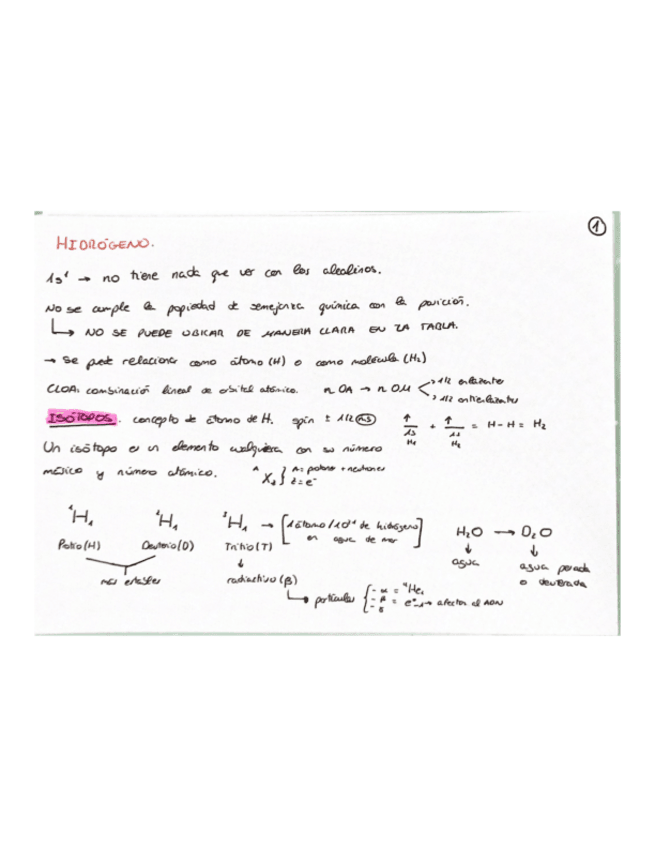 1
HIDRÓGENO.
1s¹ → no tiene nada que ver con los alcalinos.
NO se cumple la propiedad de semejanza química con la posición.
↳ NO SE PUEDE UBICAR DE MANERA CLARA EN LA TABLA.
→ Se puede relacionar como átomo (H) o como molécula (H₂)
CLOA: combinación lineal de orbital atómico. n OA → n OM < 1/2 enlazantes
1/2 antienlazantes
ISÓTOPOS. concepto de átomo de H. spin ± 1/2 ms ↑/1s H₁ + ↑/1s H₂ = H-H = H₂
Un isótopo es un elemento cualquiera con su número
másico y número atómico. ᴬX } A = protones + neutrones
Z = e⁻
¹H₁ ²H₁ ³H₁ → [1 átomo/10 de hidrógeno en agua de mar] H₂O → D₂O
Protio (H) Deuterio (D) Tritio (T) agua agua pesada
o deuterada
más estables radiactivo (β)
↳ partículas { - α = ⁴He
- β = e⁻ → afectan el ADN
- γ